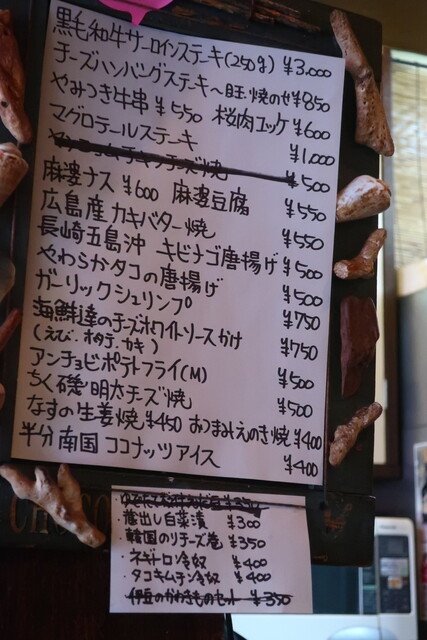 黒毛和牛サーロインステーキ(250g) ¥3,000
チーズハンバーグステーキ〜目玉焼のせ ¥850
やみつき牛串 ¥550 桜肉ユッケ ¥600
マグロテールステーキ ¥1,000
チーズ焼 ¥500
麻婆ナス ¥600 麻婆豆腐 ¥550
広島産カキバター焼 ¥550
長崎五島沖 キビナゴ唐揚げ ¥500
やわらかタコの唐揚げ ¥500
ガーリックシュリンプ ¥750
海鮮達のチーズホワイトソースかけ ¥750
(えび・ホタテ・カキ)
アンチョビポテトフライ(M) ¥500
ちく磯明太チーズ焼 ¥500
なすの生姜焼 ¥450 おつまみえのき焼 ¥400
半分南国 ココナッツアイス ¥400
蔵出し白菜漬 ¥300
韓国のりチーズ巻 ¥350
ネギトロ冷奴 ¥400
タコキムチ冷奴 ¥400
伊豆のかわきものセット ¥350